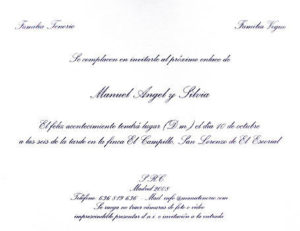 Familia Tenorio
Familia Vegue
Se complacen en invitarle al próximo enlace de
Manuel Angel y Silvia
El feliz acontecimiento tendrá lugar (D.m.) el día 10 de octubre
a las seis de la tarde en la finca El Campillo, San Lorenzo de El Escorial
S.R.C.
Madrid 2008
Teléfono: 636 819 636 Mail:
Se ruega no traer cámaras de foto o vídeo
imprescindible presentar d.n.i. o invitación a la entrada